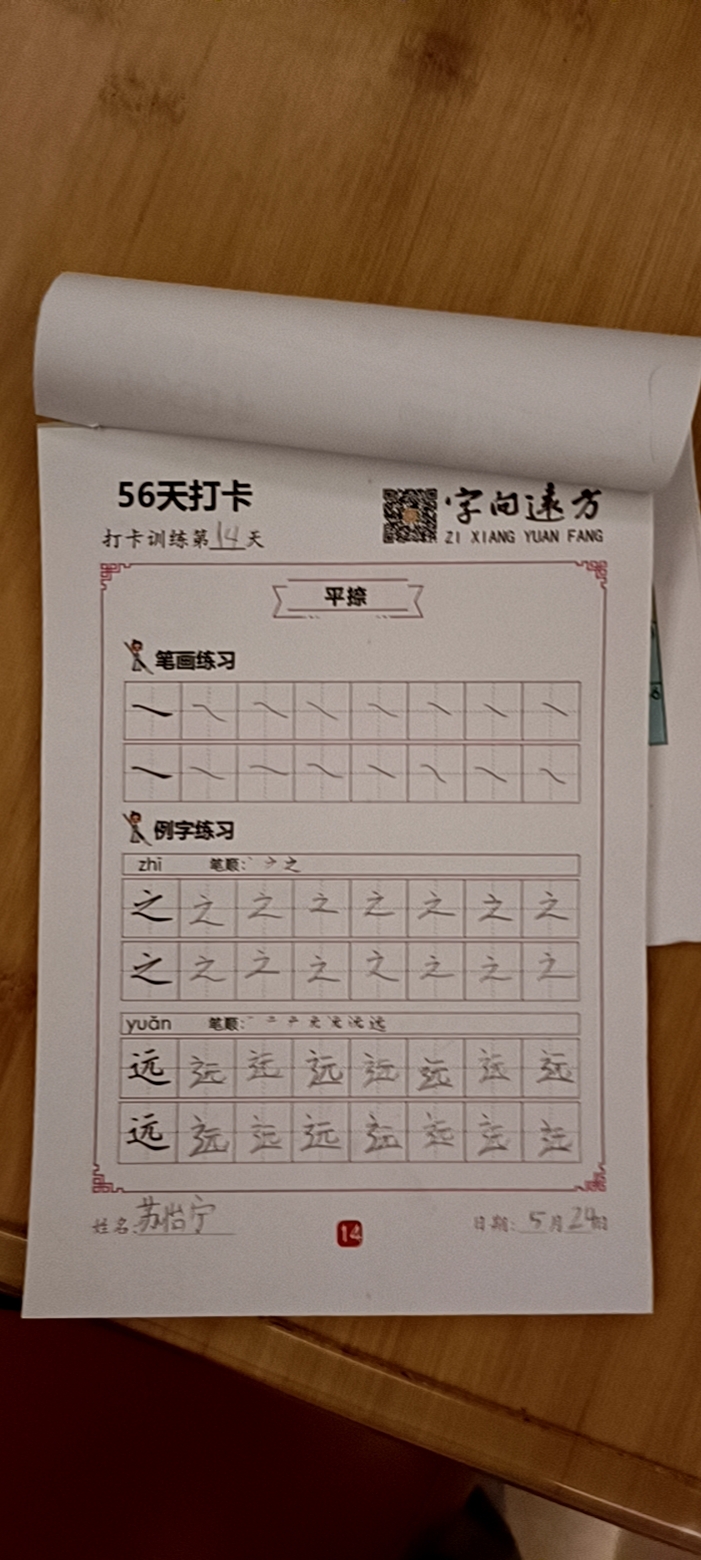 56天打卡
字向远方
ZI XIANG YUAN FANG
打卡训练第14天
平捺
笔画练习
例字练习
zhī 笔顺:
之 之 之 之 之 之 之 之
之 之 之 之 之 之 之 之
yuǎn 笔顺:
远 远 远 远 远 远 远 远
远 远 远 远 远 远 远 远
姓名:苏怡宁
14
日期: 5月24日